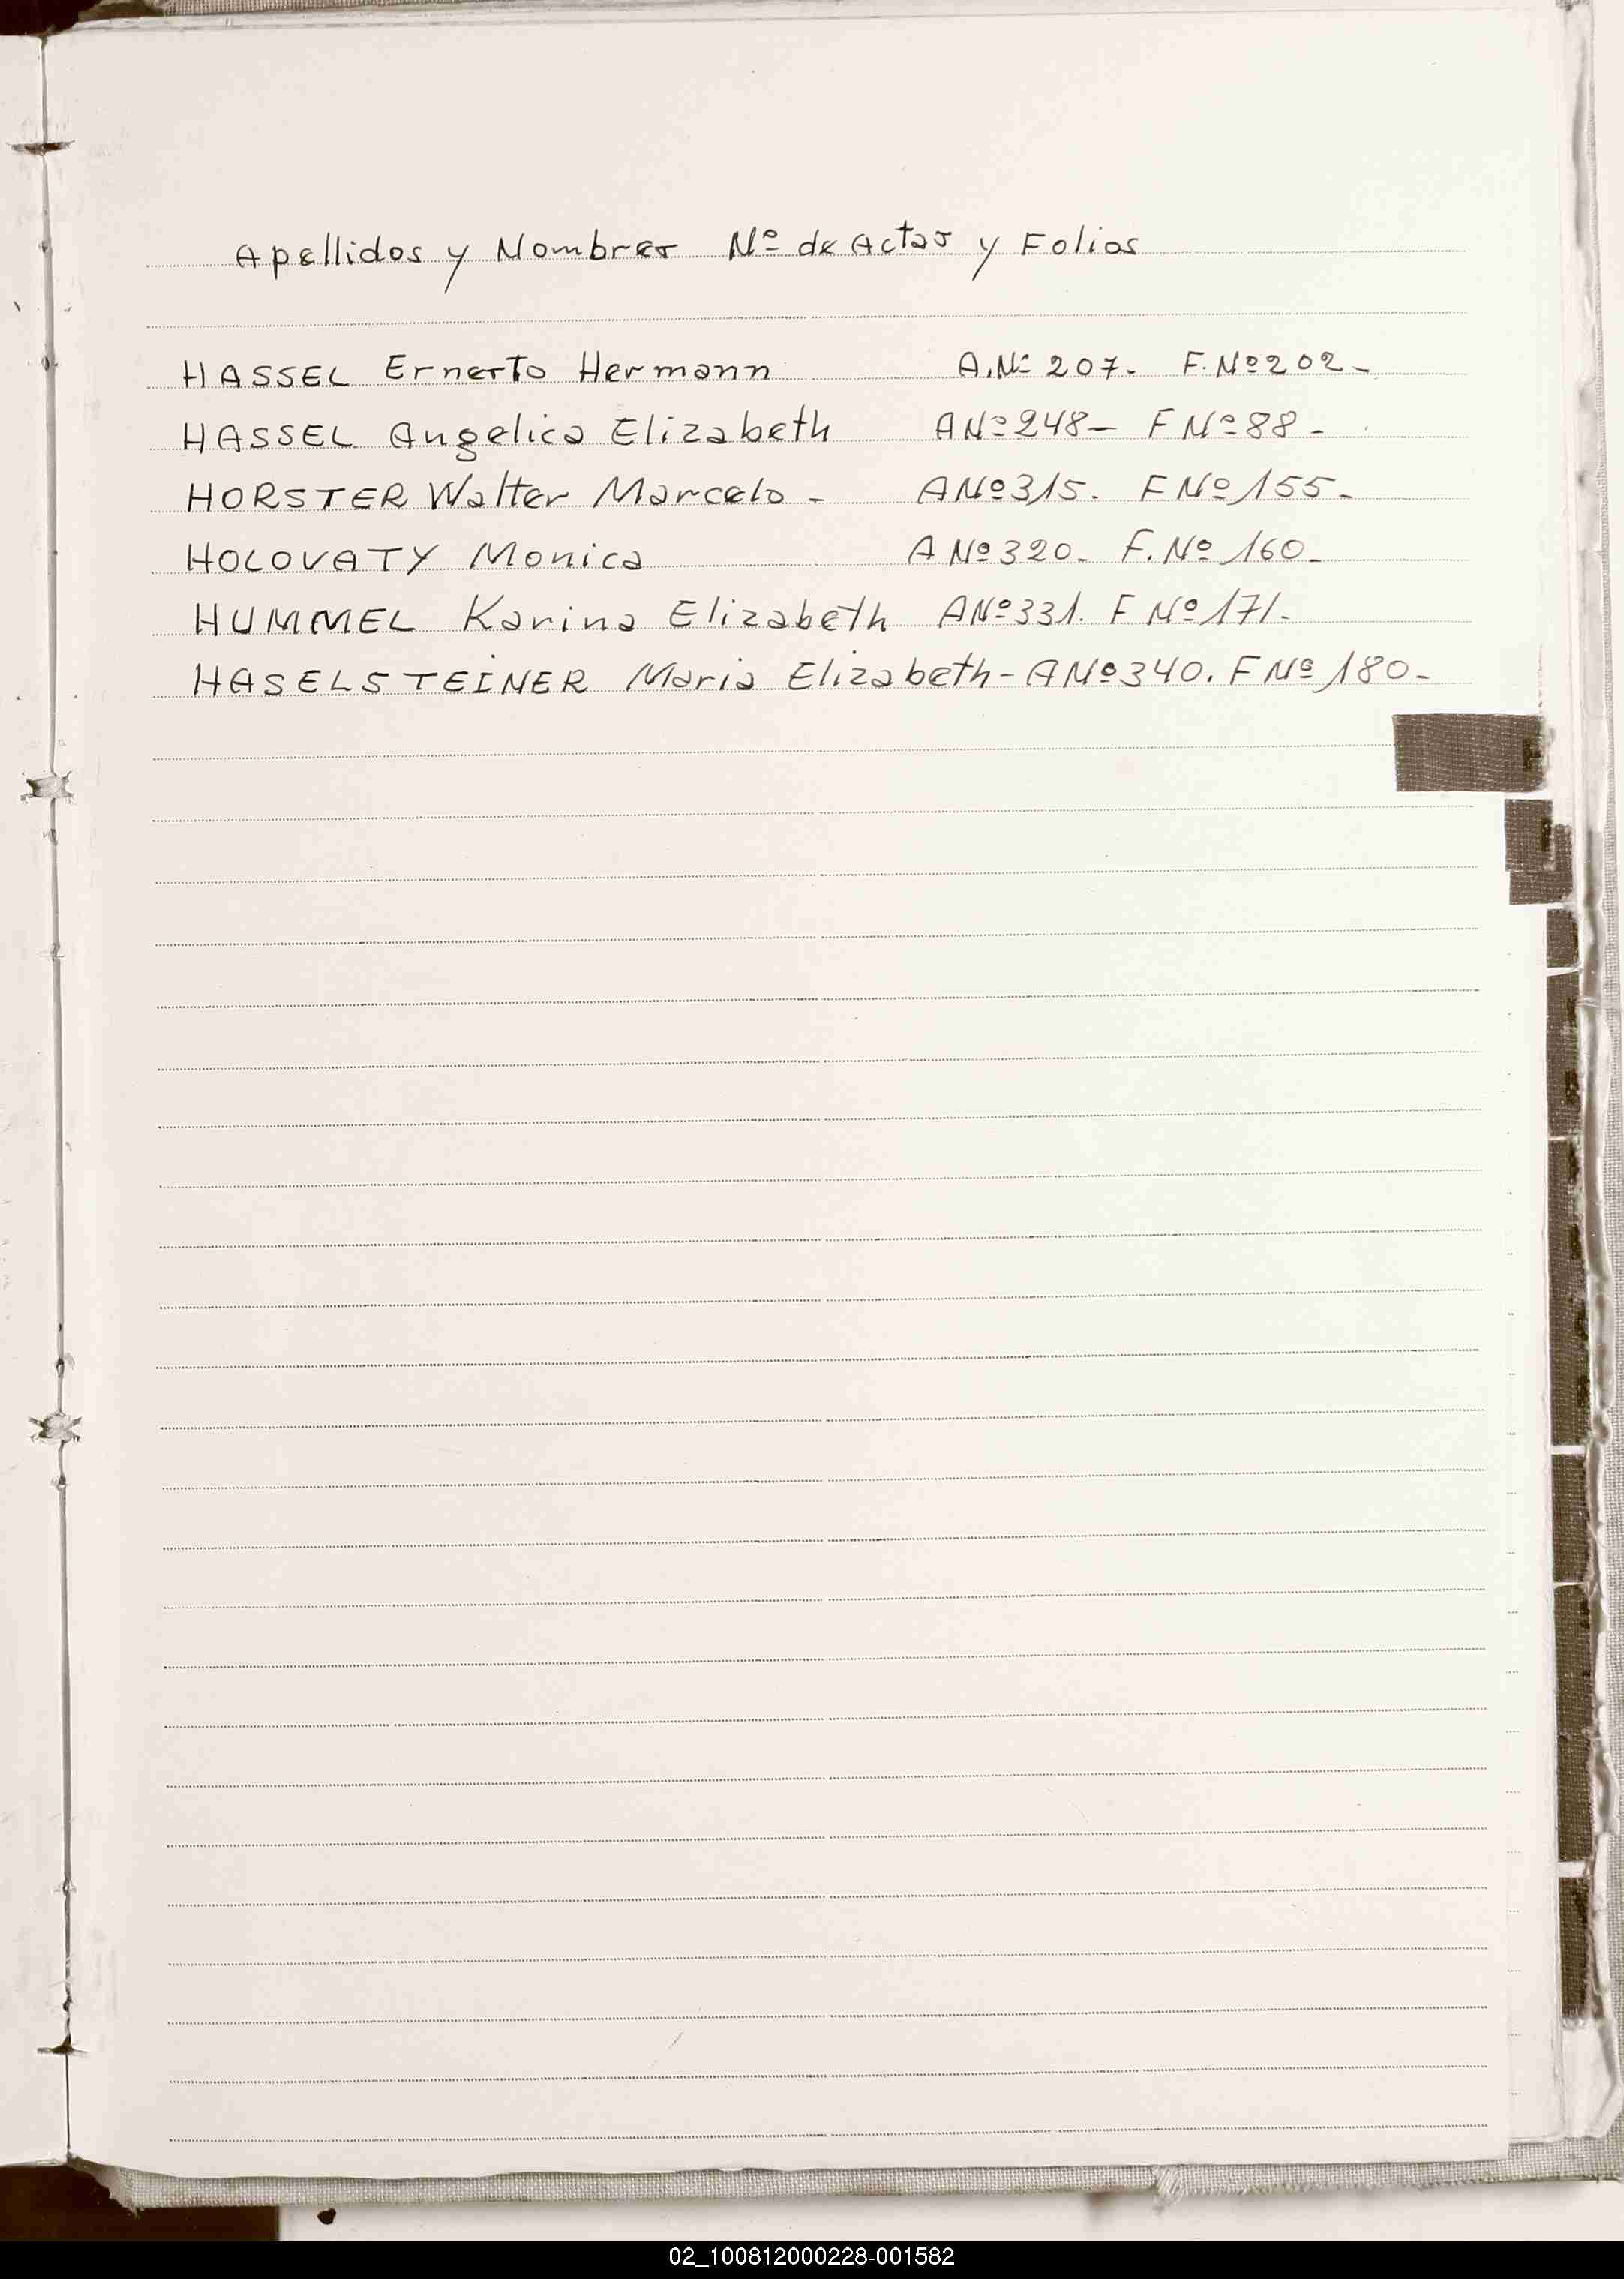 Apellidos y Nombres Nº de Actas y Folios
HASSEL Ernesto Hermann A.Nº 207. F.Nº 202-
HASSEL Angelica Elizabeth A Nº 248- F Nº 88-
HORSTER Walter Marcelo - A Nº 315. F Nº 155-
HOLOVATY Monica A Nº 320- F. Nº 160-
HUMMEL Karina Elizabeth A Nº 331. F Nº 171-
HASELSTEINER Maria Elizabeth - A Nº 340. F Nº 180-
02_100812000228-001582